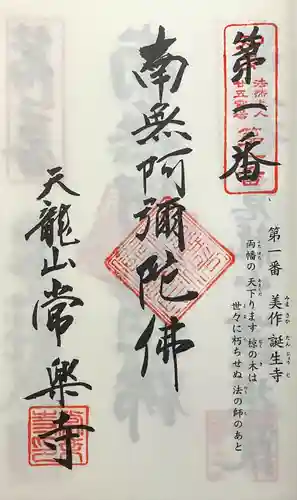 第一番
法然上人
南無阿彌陀佛
天龍山常樂寺
第一番 美作 誕生寺
両幡の 天下ります 椋の木は
世々に朽ちせぬ 法の師のあと